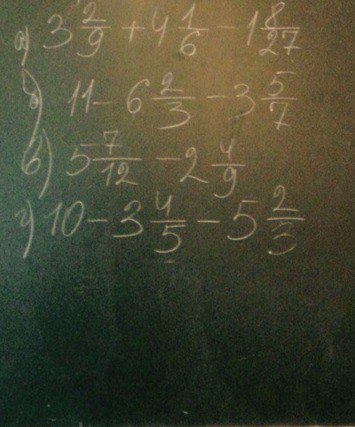 а) 3 2/9 + 4 1/6 - 1 8/27
б) 11 - 6 2/3 - 3 5/7
в) 5 7/12 - 2 4/9
г) 10 - 3 4/5 - 5 2/3